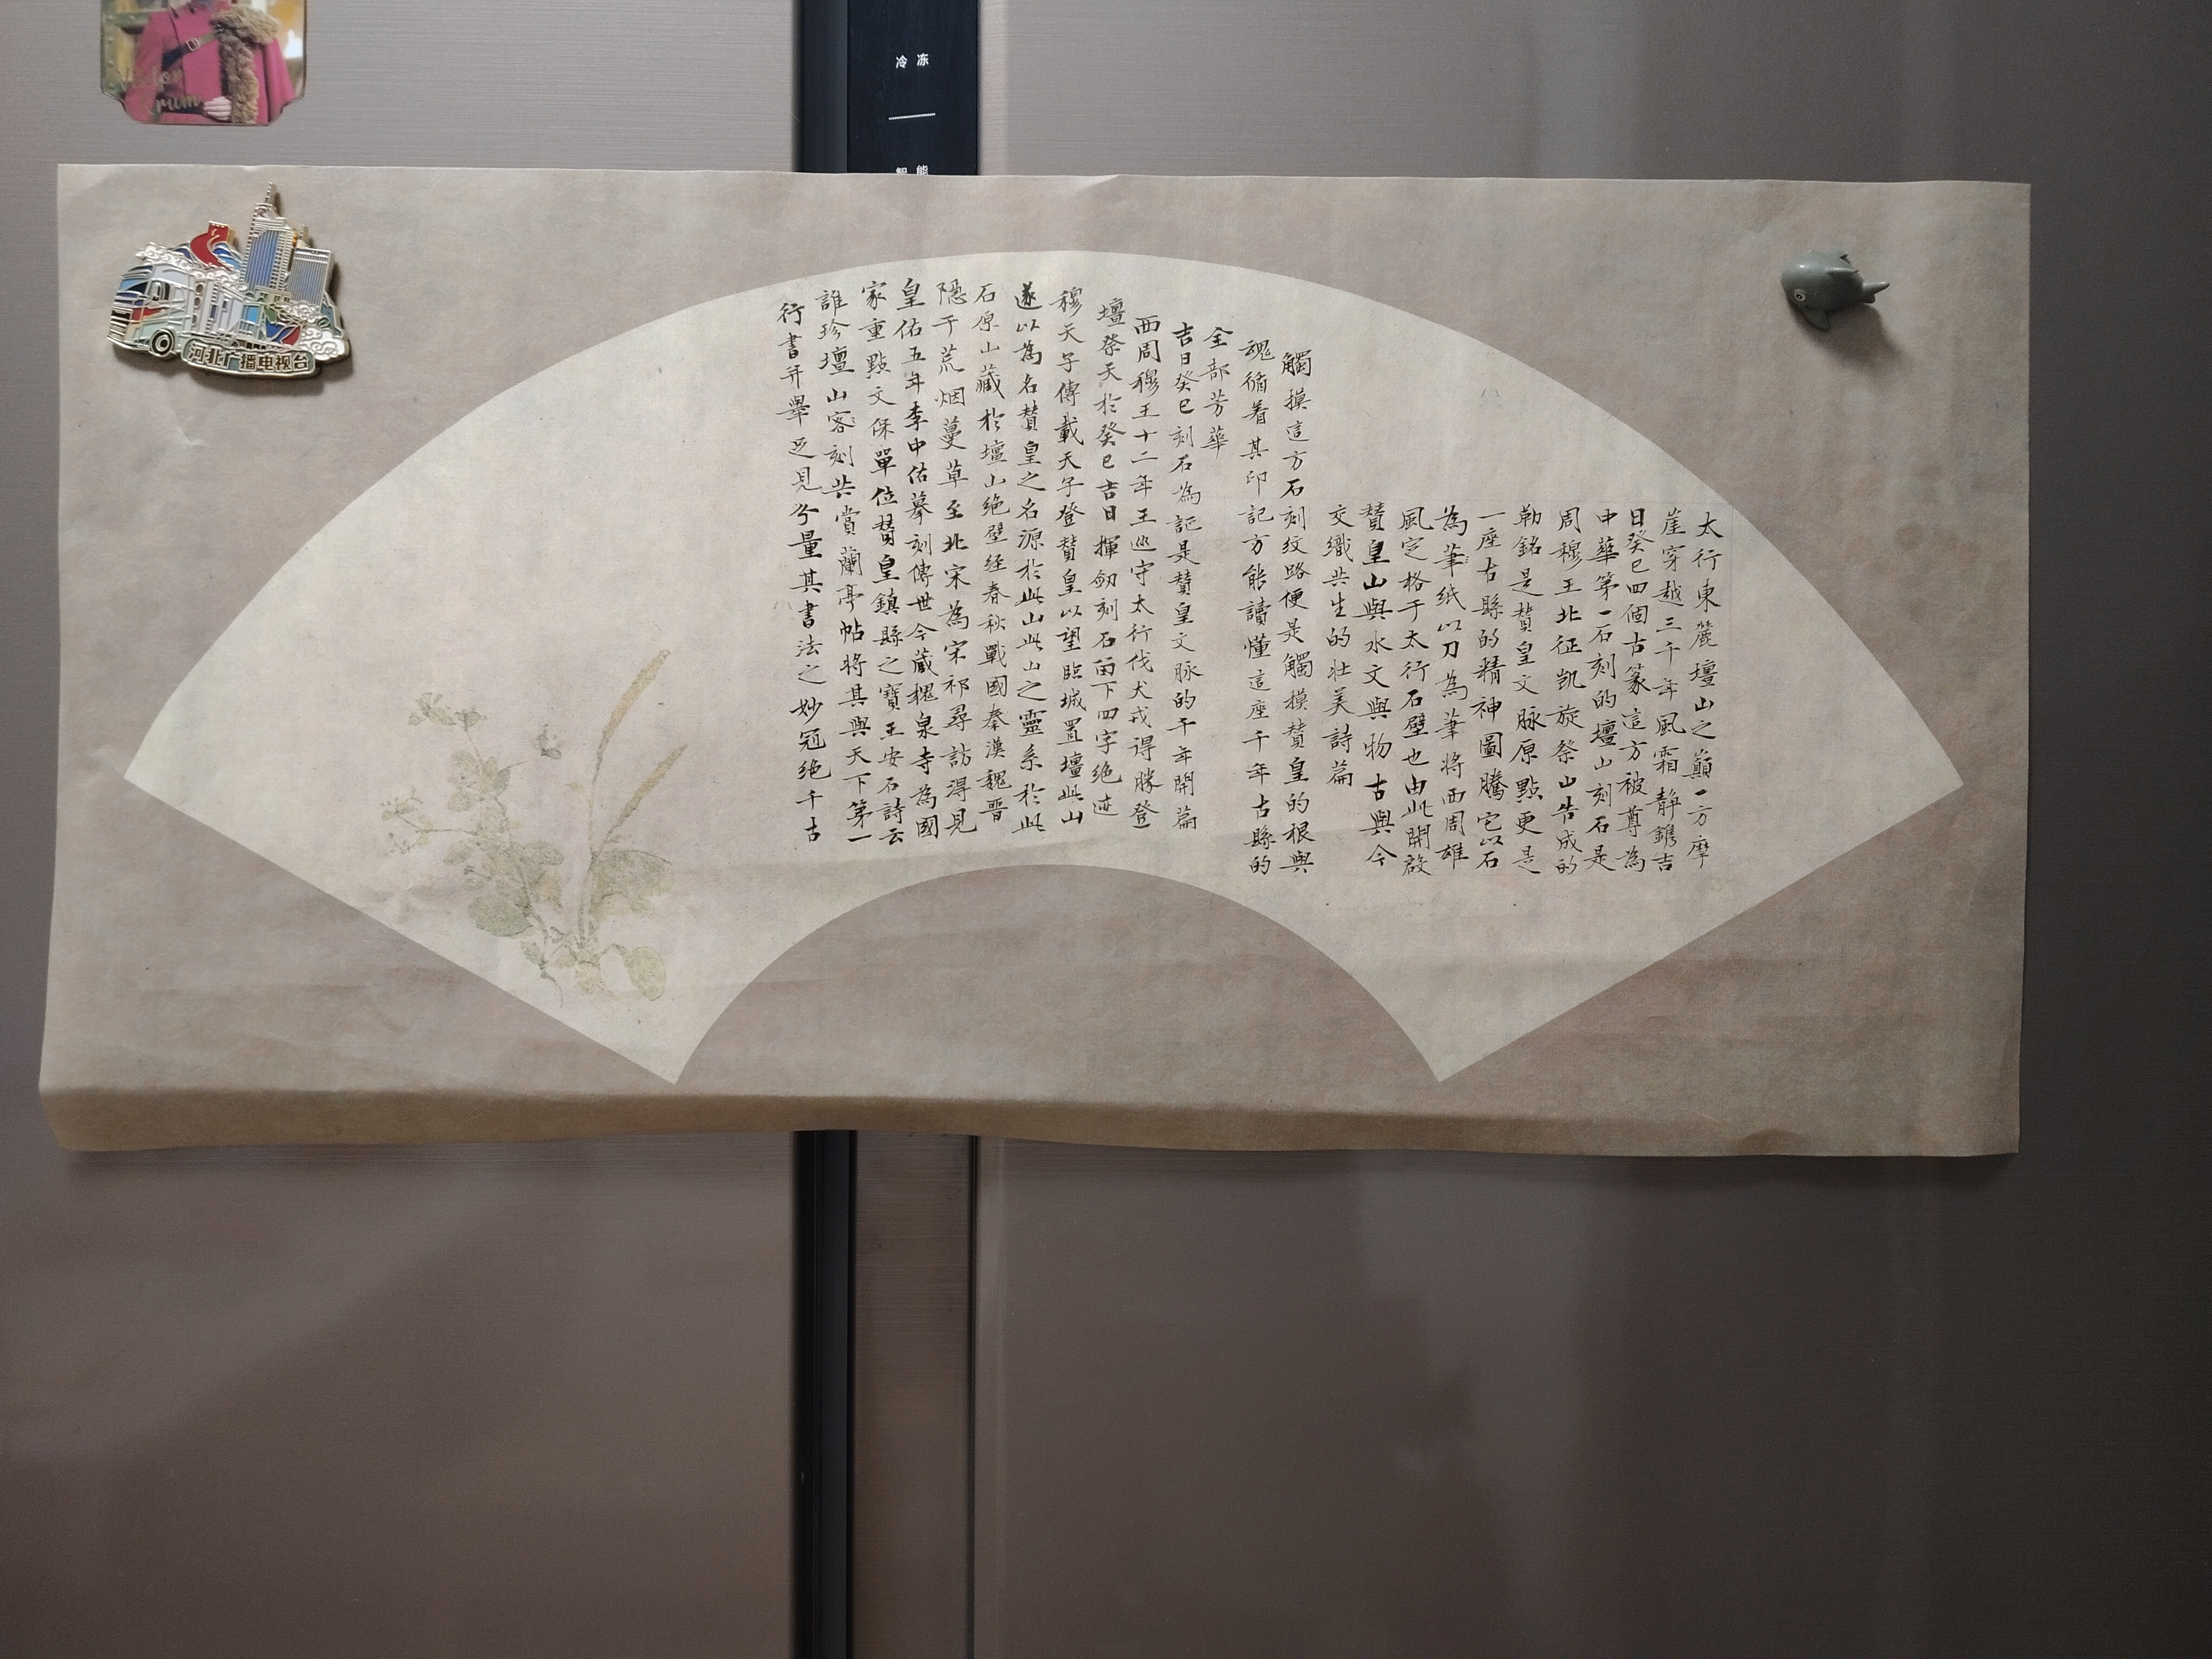 冷冻
智能
河北广播电视台
太行東麓壇山之巔一方摩
崖穿越三千年風霜靜鐫吉
日癸巳四個古篆這方被尊為
中華第一石刻的壇山刻石是
周穆王北征凱旋祭山告成的
勒銘是贊皇文脉原點更是
一座古縣的精神圖騰它以石
為筆紙以刀為筆將西周雄
風定格于太行石壁也由此開啟
贊皇山與水文與物古與今
交織共生的壯美詩篇
觸摸這方石刻紋路便是觸摸贊皇的根與
魂循着其印記方能讀懂這座千年古縣的
全部芳華
吉日癸巳刻石為記是贊皇文脉的千年開篇
西周穆王十二年王巡守太行伐犬戎得勝登
壇祭天於癸巳吉日揮劒刻石留下四字绝迹
穆天子傳載天子登贊皇以望臨城置壇此山
遂以為名贊皇之名源於此山此山之靈系於此
石原山藏於壇山绝壁经春秋戰國秦漢魏晋
隱于荒烟蔓草至北宋為宋祁尋訪得見
皇佑五年李中佑摹刻傳世今藏槐泉寺為國
家重點文保單位贊皇鎮縣之寶王安石詩云
誰珍壇山客刻共賞蘭亭帖将其與天下第一
行書并舉足見分量其書法之妙冠绝千古